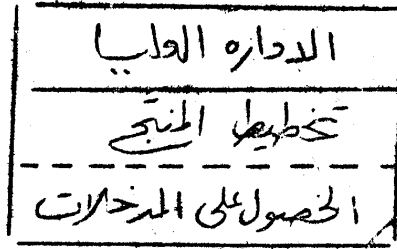 الاداره العليا
تخطيط المنتج
الحصول على المدخلات